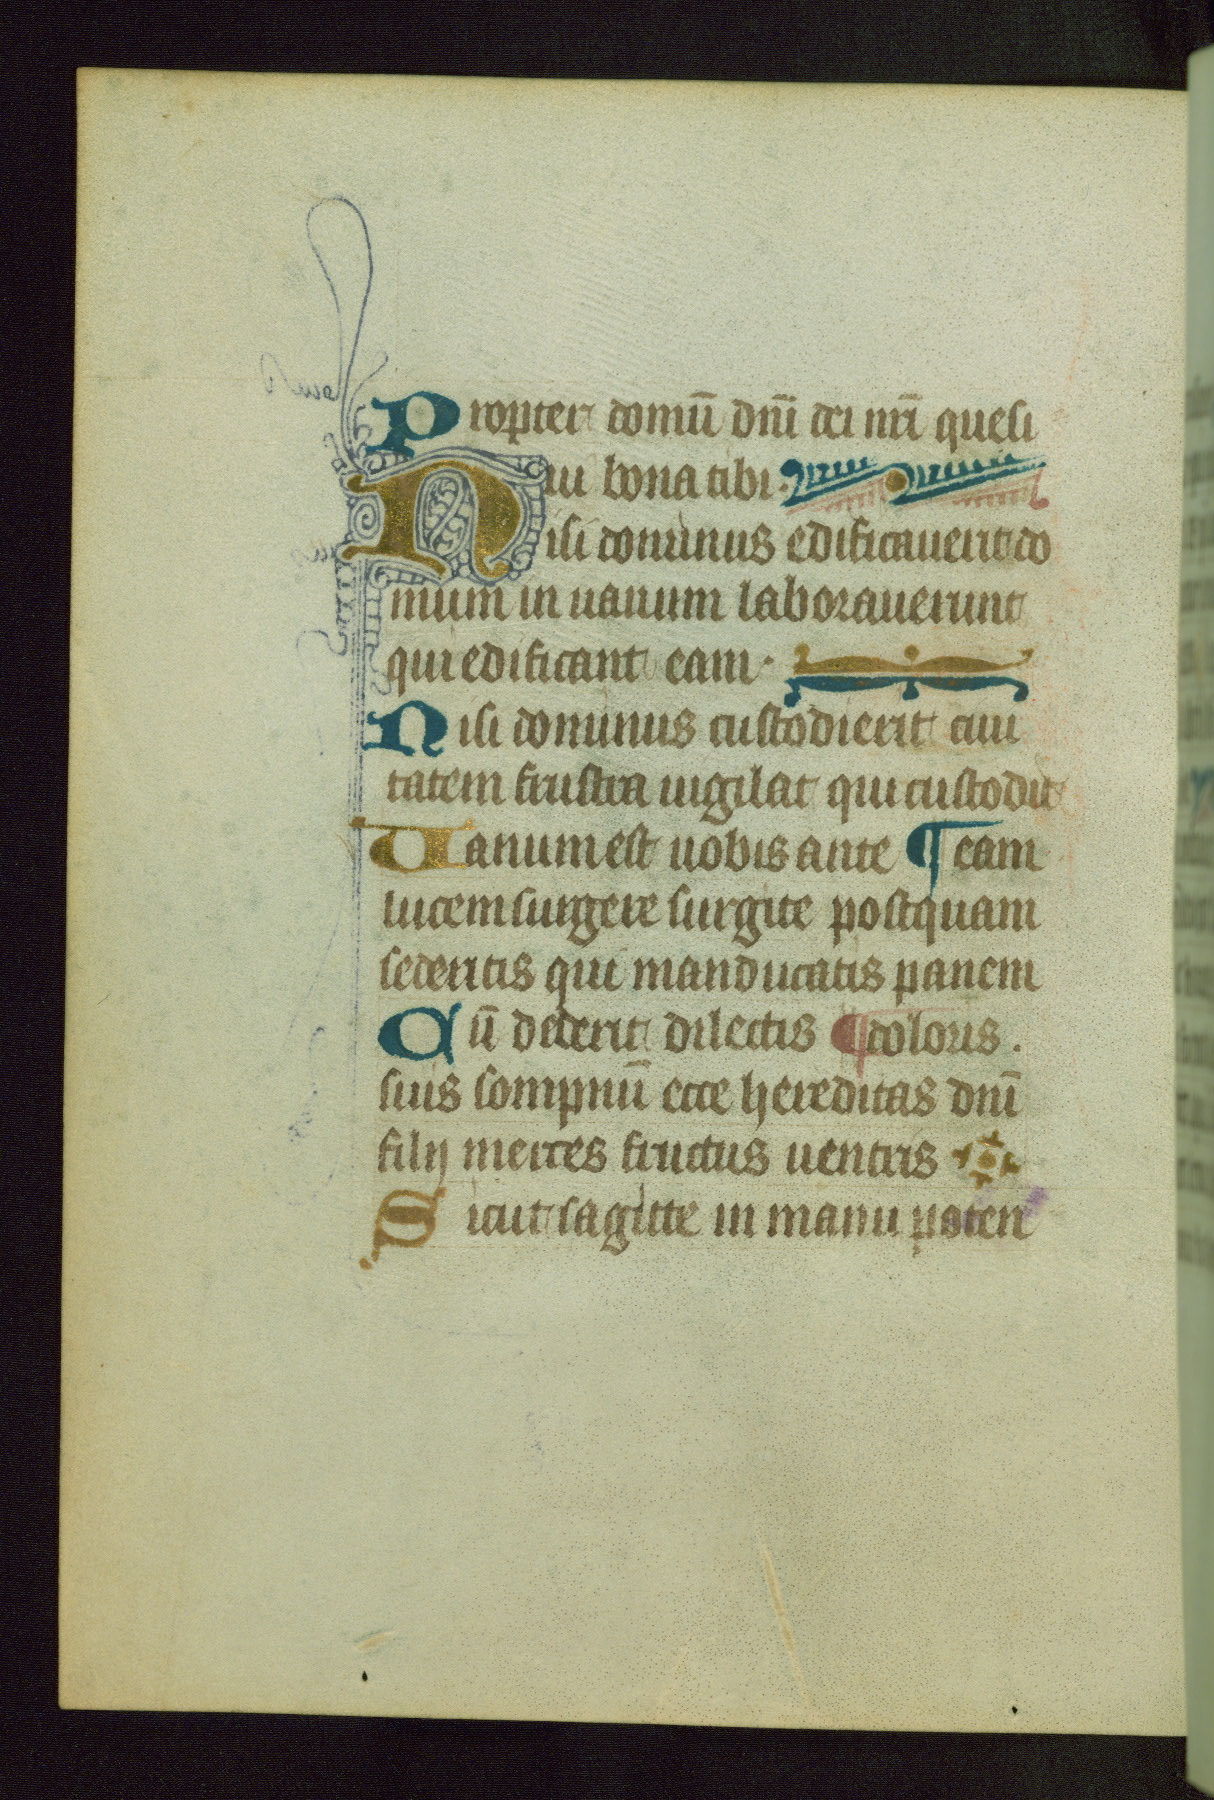 Propter domū dnī dei nrī quesi
ui bona tibi.
Nisi dominus edificauerit do
mum in uanum laborauerunt
qui edificant eam.
Nisi dominus custodierit ciui
tatem frustra uigilat qui custodit
Uanum est uobis ante ¶ eam
lucem surgere surgite postquam
sederitis qui manducatis panem
Cū dederit dilectis ¶ doloris.
suis sompnū ecce hereditas dnī
filij merces fructus uentris
Sicut sagitte in manu poten